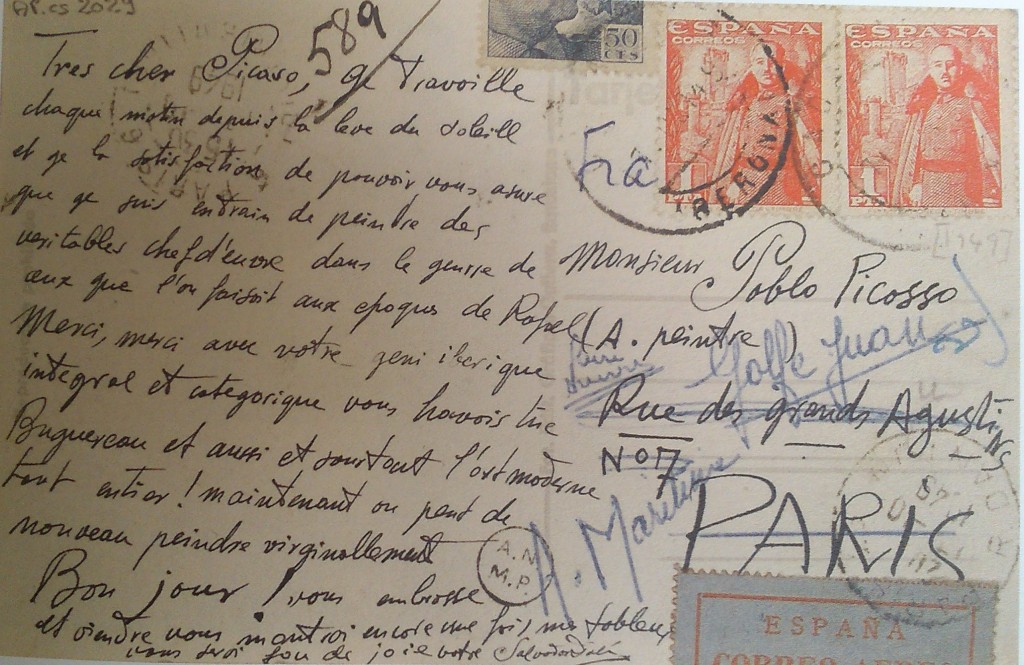 AP.cs 2029
589
Tres cher Picaso, ge travoille
chaque motin depuis la leve du soleill
et ge la sotisfaction de pouvoir vous asure
que ge suis entrain de peindre des
veritables chef d'euvre dans le genrre de
ceux que l'on faisoit aux epoques de Rafael
Merci, merci avec votre geni iberique
integral et categorique vous havois tue
Buguereau et aussi et sourtout l'ort moderne
tout entier! maintenant on peut de
nouveau peindre virginollement
Bon jour! vous embrosse
et viendre vous montroi encore une fois mes tobleux
vous serai fou de joie votre Salvador Dalí
50
CTS
ESPAÑA
CORREOS
1
PTA
GERONA
ESPAÑA
CORREOS
1
[1949]
Fra
Monsieur Poblo Picosso
(A. peintre)
Golfe Juan
Rue des grands Agustins
No 7
A. Maritime
PARIS
A.N.
M.P.
PARIS
ESPAÑA
CORREO